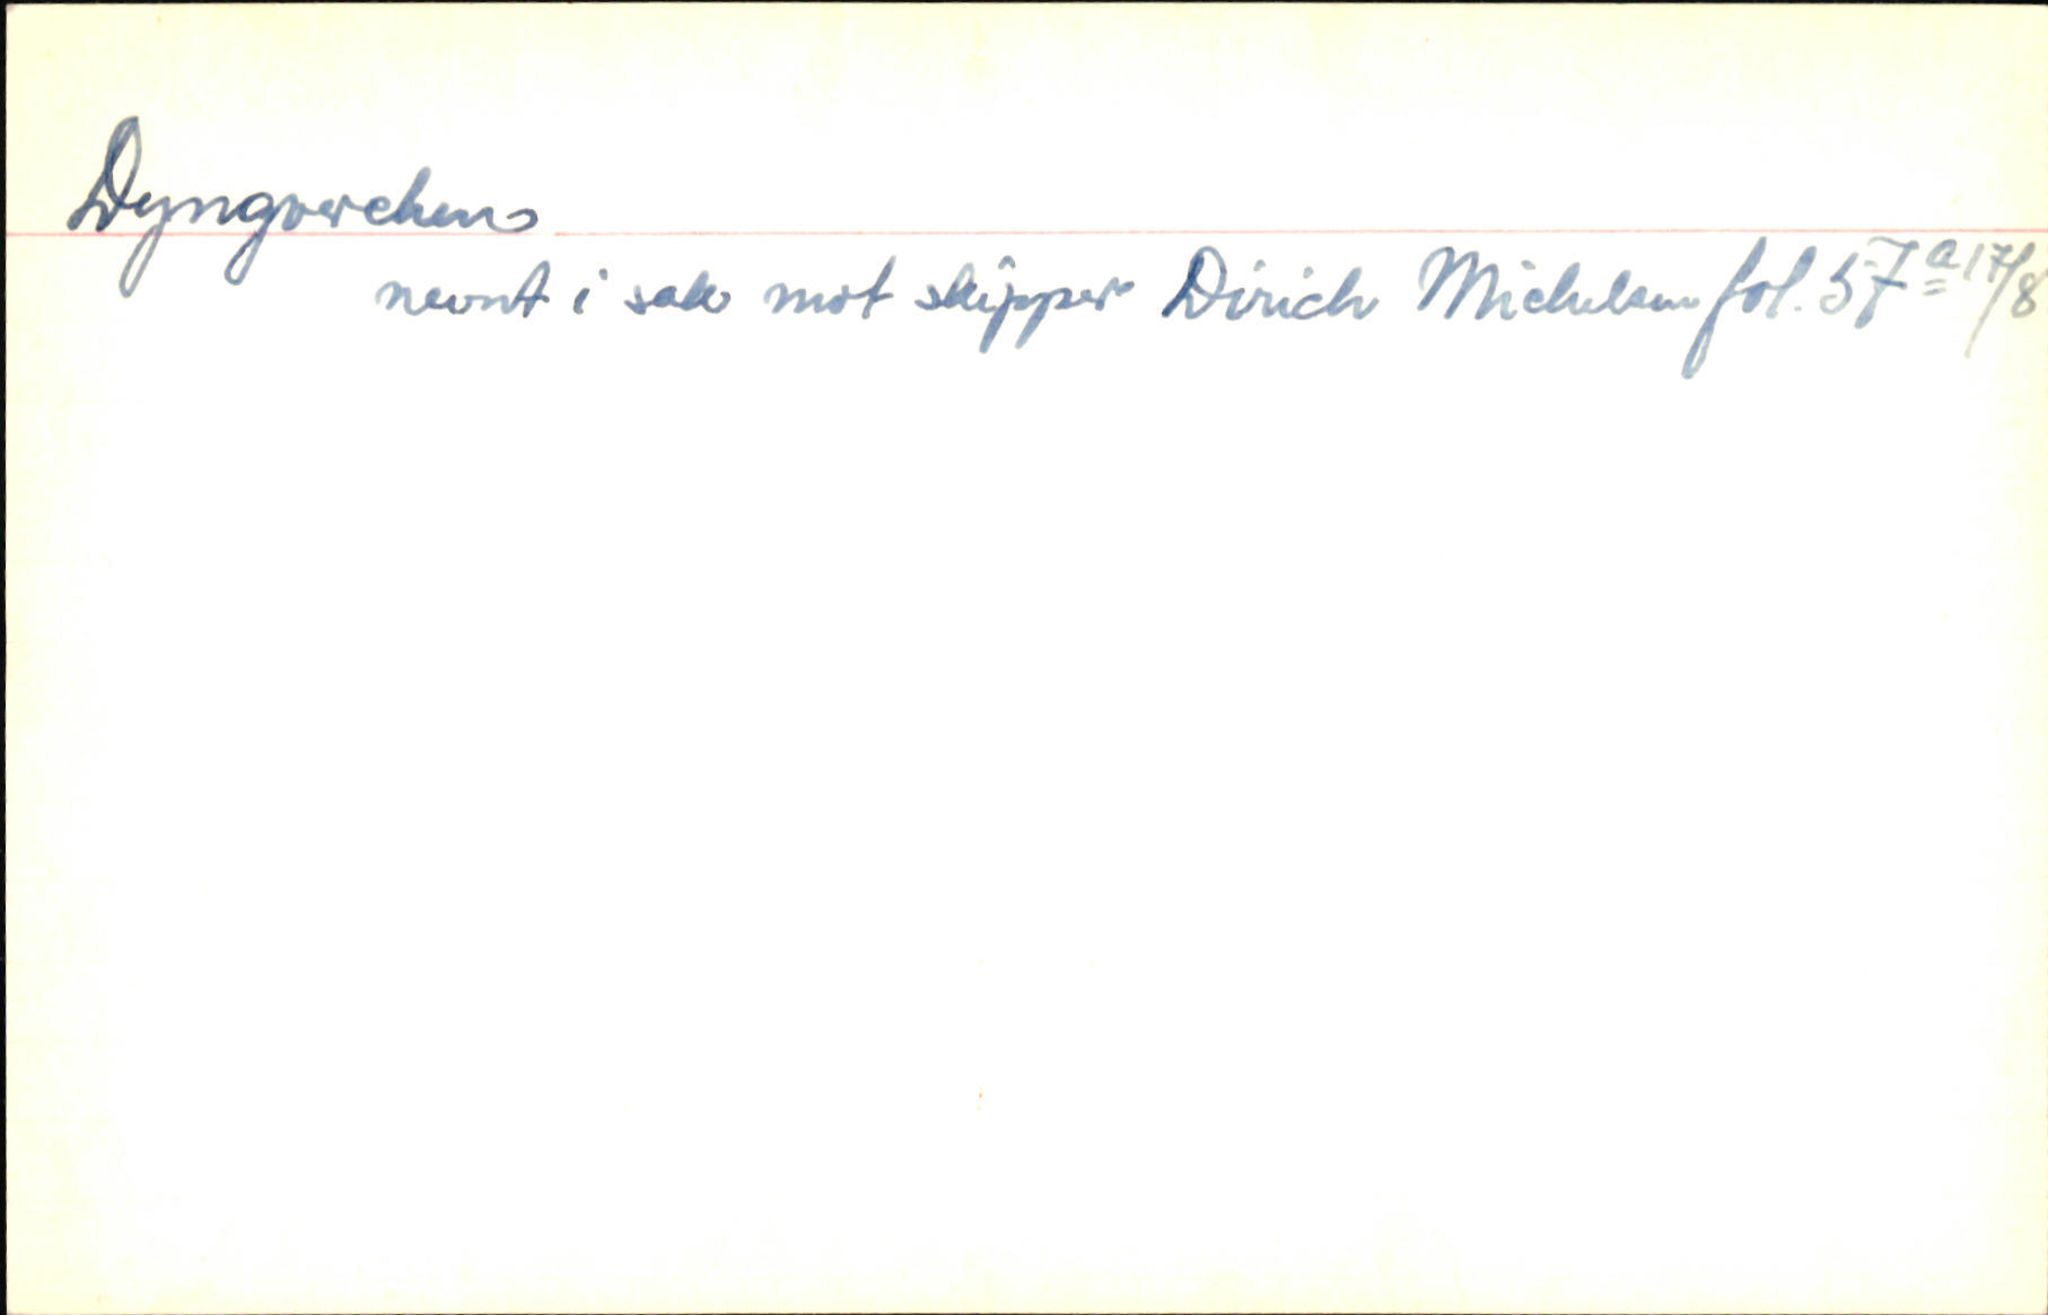 Dyngverchen
nevnt i sak mot skipper Dirich Michelsen fol. 57a 17/8